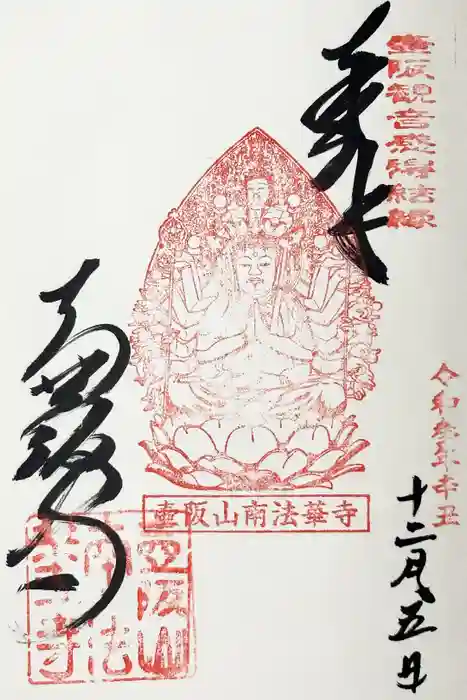 壷阪観音
結縁
奉拝
令和参年辛丑
十二月五日
壷阪山南法華寺
南法華寺
壷阪山
南法
華寺